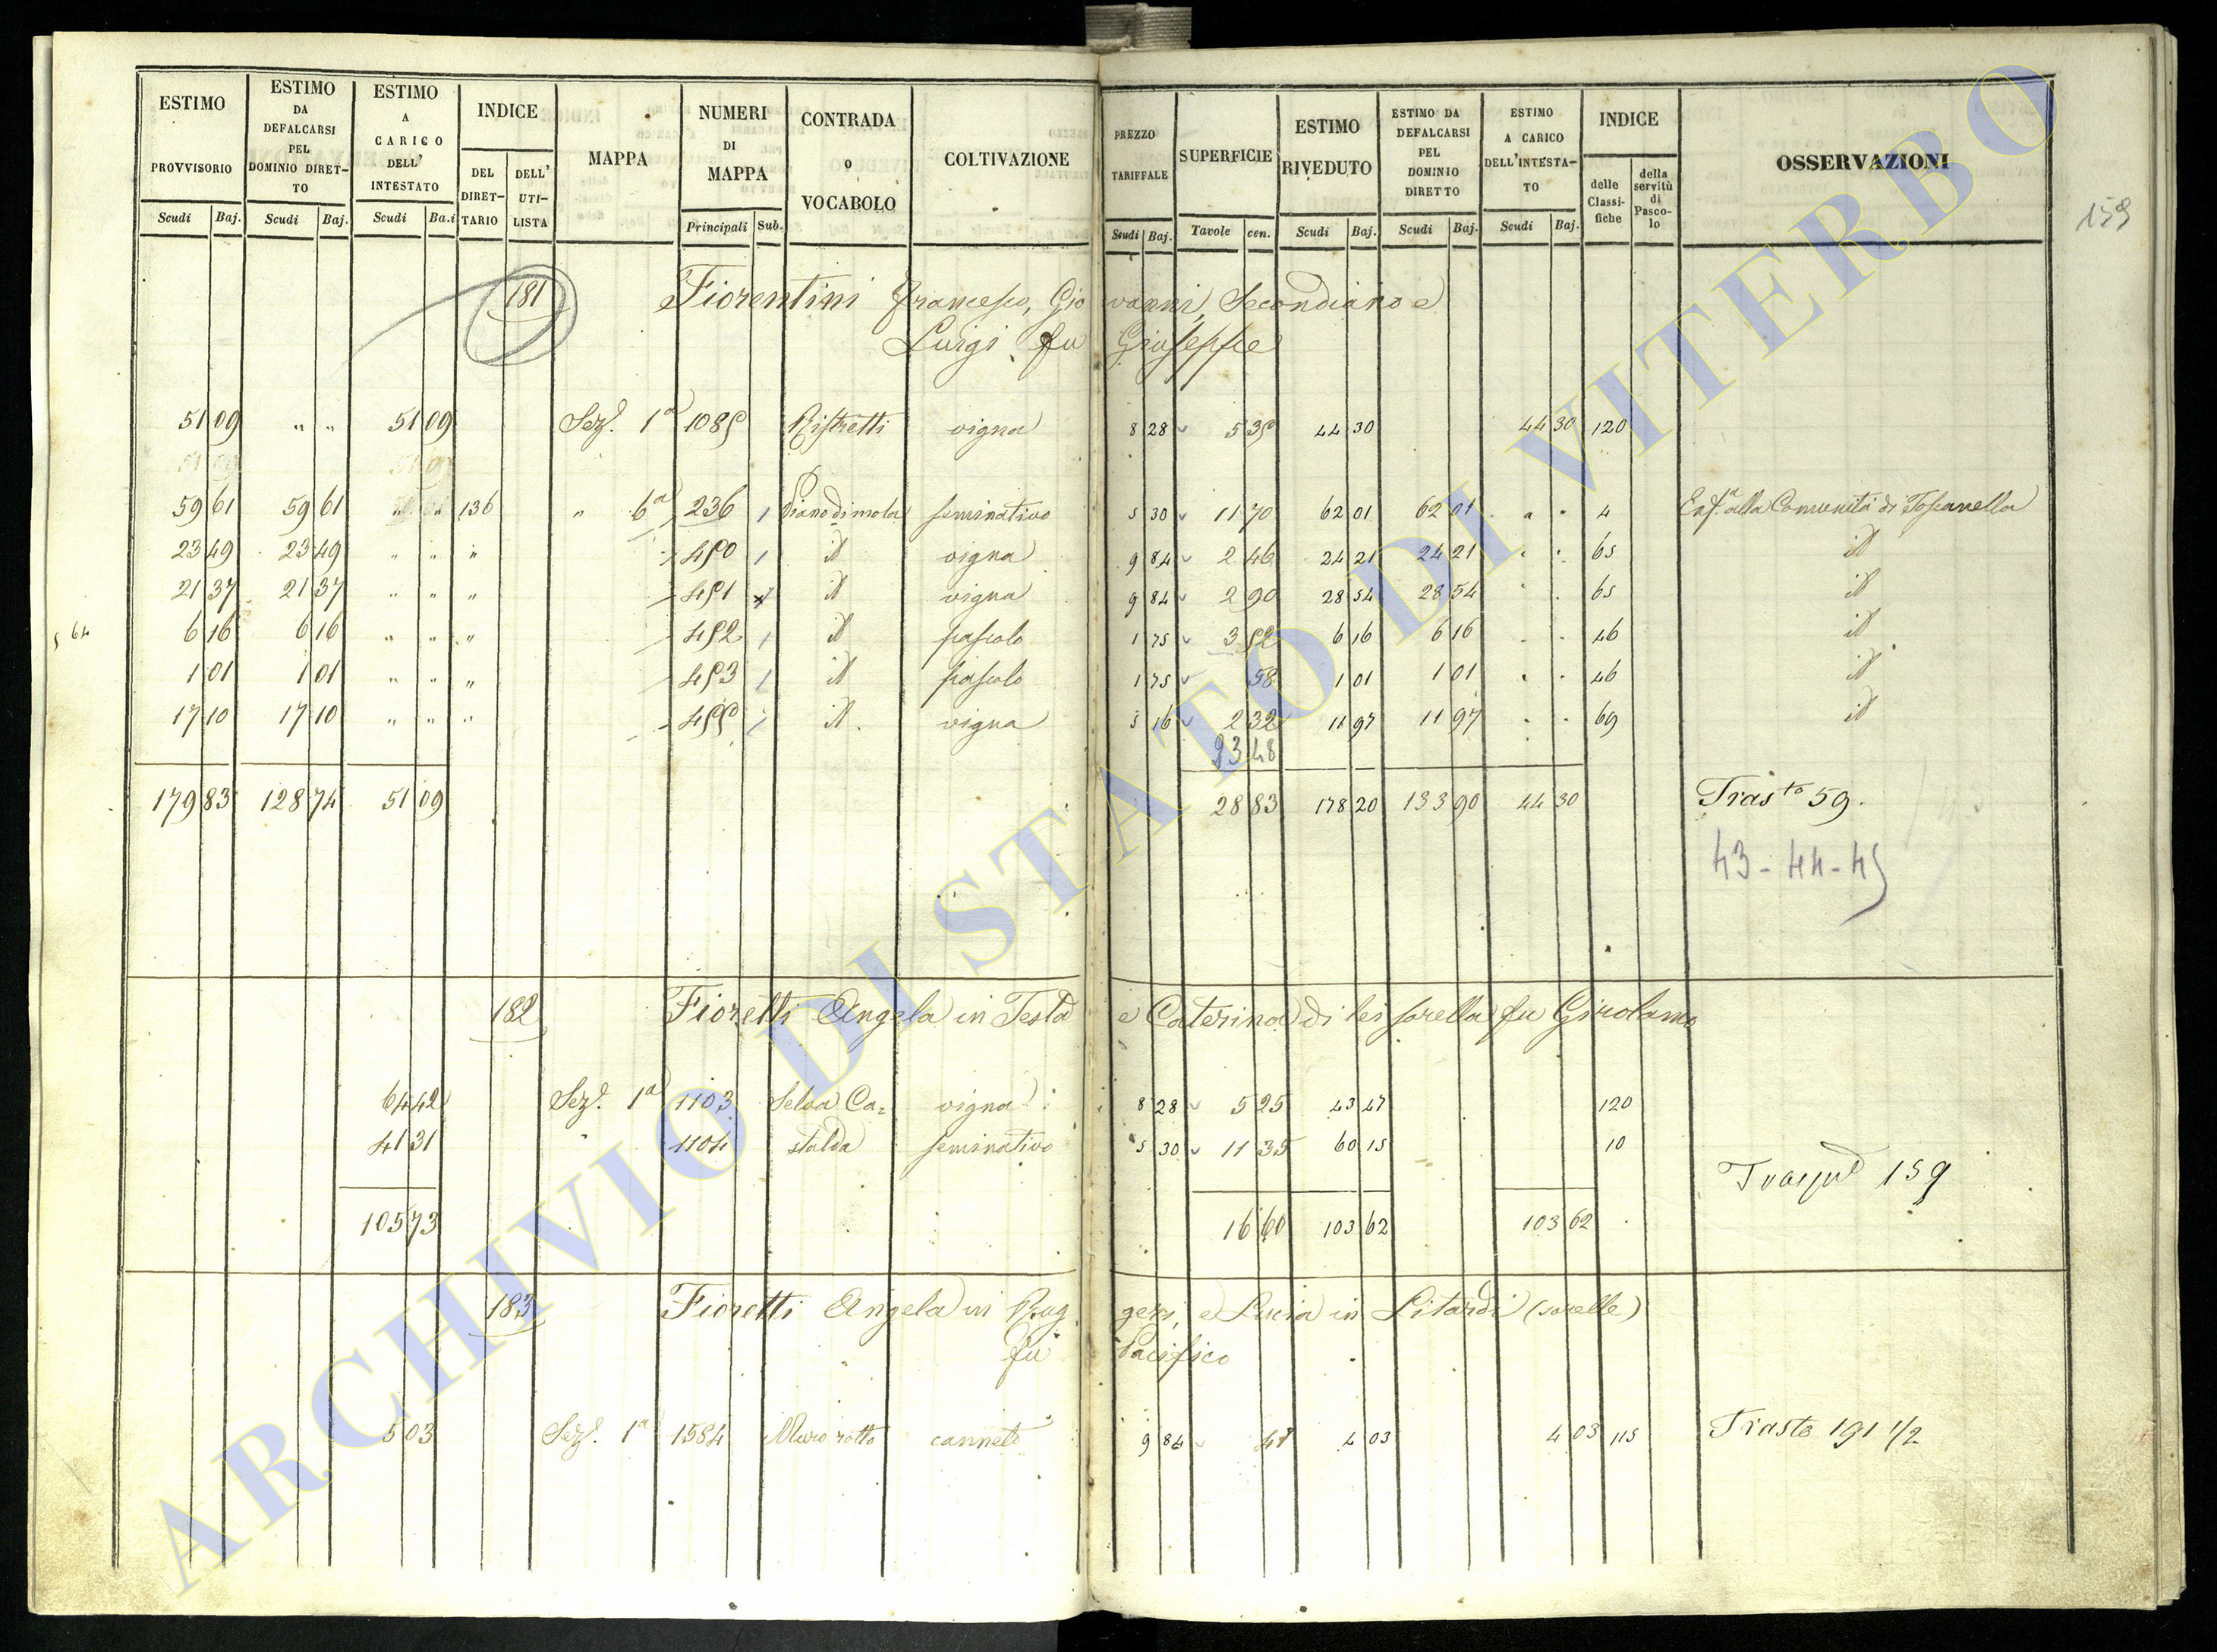 ESTIMO PROVVISORIO Scudi Baj. ESTIMO DA DEFALCARSI PEL DOMINIO DIRET-TO Scudi Baj. ESTIMO A CARICO DELL' INTESTATO Scudi Ba.i INDICE DEL DIRET-TARIO DELL' UTI-LISTA MAPPA NUMERI DI MAPPA Principali Sub. CONTRADA o VOCABOLO COLTIVAZIONE PREZZO TARIFFALE Scudi Baj. SUPERFICIE Tavole cen. ESTIMO RIVEDUTO Scudi Baj. ESTIMO DA DEFALCARSI PEL DOMINIO DIRETTO Scudi Baj. ESTIMO A CARICO DELL'INTESTA-TO Scudi Baj. INDICE delle Classi-fiche della servitù di Pasco-lo OSSERVAZIONI
159
181 Fiorentini Francesco, Giovanni, Secondiano e
Luigi fu Giuseppe
51 09 " " 51 09 Sez.e 1a 1085 Ristretti vigna 8 28 5 35 44 30 44 30 120
59 61 59 61 " " 136 " 6a 236 1 Piano di mola seminativo 5 30 11 70 62 01 62 01 " " 4 Enf.a alla Comunità di Toscanella
23 49 23 49 " " " 450 1 id vigna 9 84 2 46 24 21 24 21 " " 65 id
21 37 21 37 " " " 451 id vigna 9 84 2 90 28 54 28 54 " " 65 id
5 64
6 16 6 16 " " " 452 1 id pascolo 1 75 3 52 6 16 6 16 " " 46 id
1 01 1 01 " " " 453 1 id pascolo 1 75 58 1 01 1 01 " " 46 id
17 10 17 10 " " " 455 1 id vigna 5 16 2 32 11 97 11 97 " " 69 id
23 48
179 83 128 74 51 09 28 83 178 20 133 90 44 30 Tras.to 59.
43 - 44 - 45
182 Fioretti Angela in Testa e Caterina di lei sorella fu Girolamo
64 42 Sez.e 1a 1103 Selva Ca= vigna 8 28 5 25 43 47 120
41 31 " 1104 stalda seminativo 5 30 11 35 60 15 10
159
105 73 16 60 103 62 103 62
183 Fioretti Angela in Ruggeri, e Lucia in Litardi (sorelle)
fu Pacifico
5 03 Sez.e 1a 1584 Muro rotto canneto 9 84 41 4 03 4 03 115 Trasto 191 1/2
ARCHIVIO DI STATO DI VITERBO